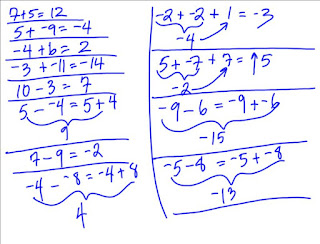 7+5=12
5+⁻9=⁻4
⁻4+6=2
⁻3+⁻11=⁻14
10-3=7
5-⁻4=5+4
9
7-9=⁻2
⁻4-⁻8=⁻4+8
4
⁻2+⁻2+1=⁻3
⁻4
5+⁻7+7=↑5
⁻2
⁻9-6=⁻9+⁻6
⁻15
⁻5-8=⁻5+⁻8
⁻13